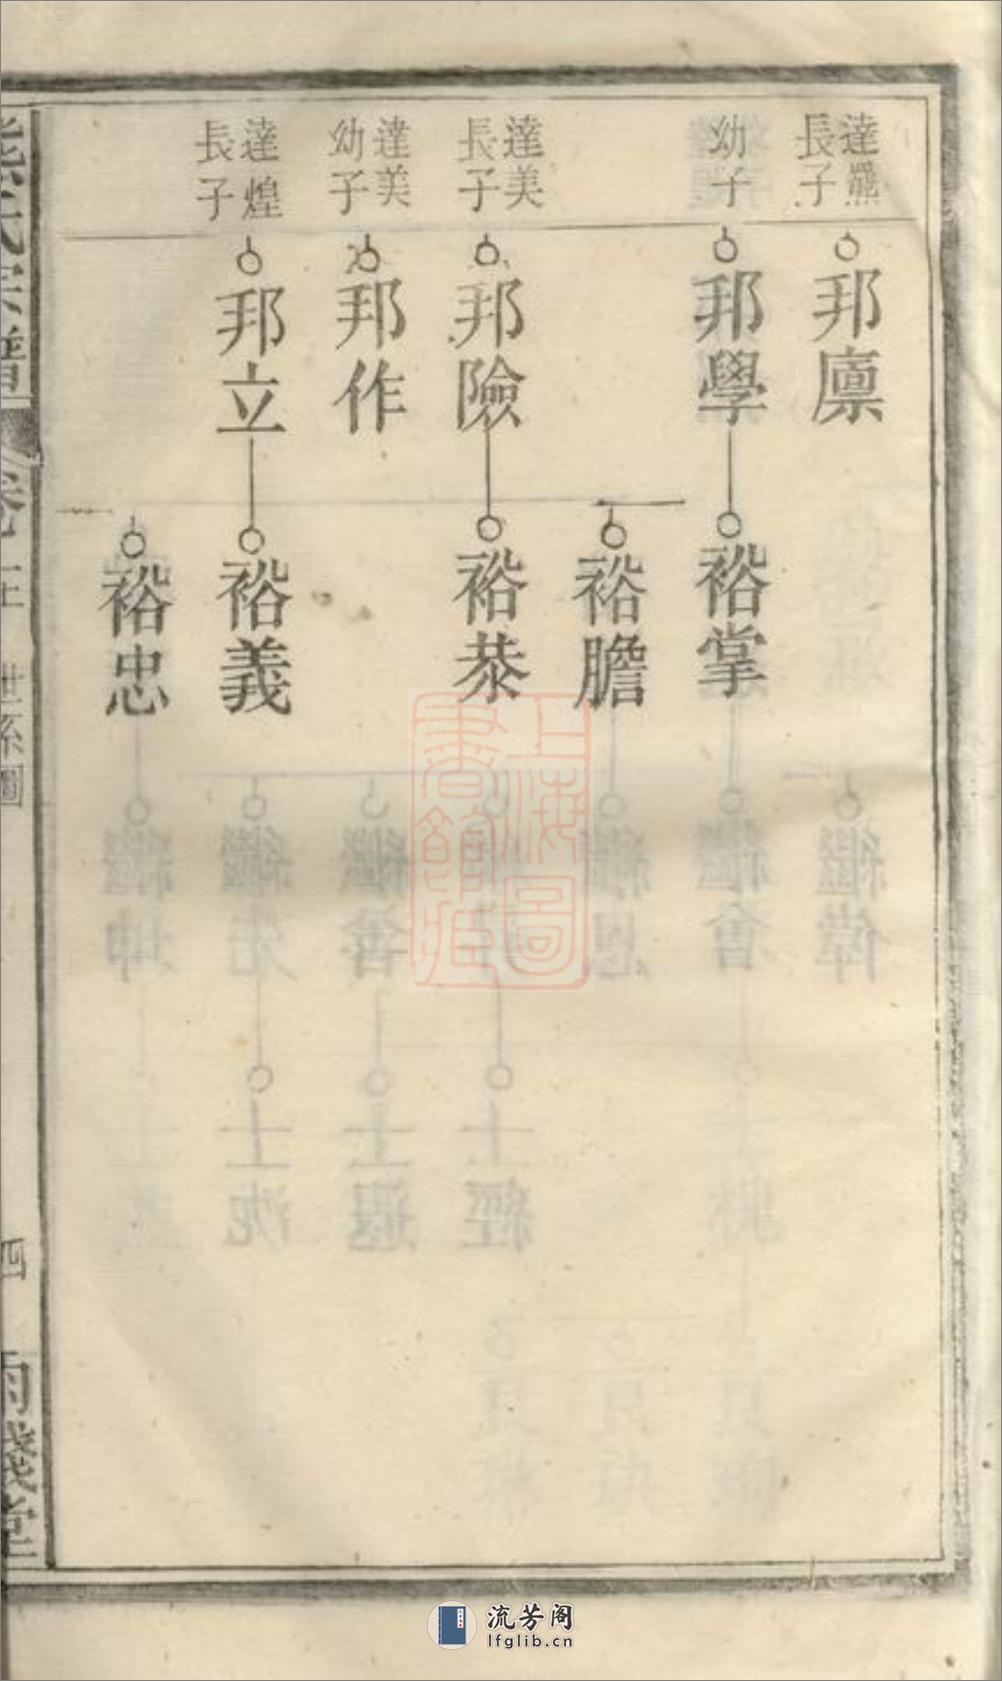 達羆
長子
邦廪
幼子
邦學
裕掌
裕膽
達美
長子
邦險
裕恭
達美
幼子
邦作
達煌
長子
邦立
裕義
裕忠
熊氏宗譜
卷上
世系圖
四
兩錢堂
上海圖
書館藏
流芳阁
lfglib.cn